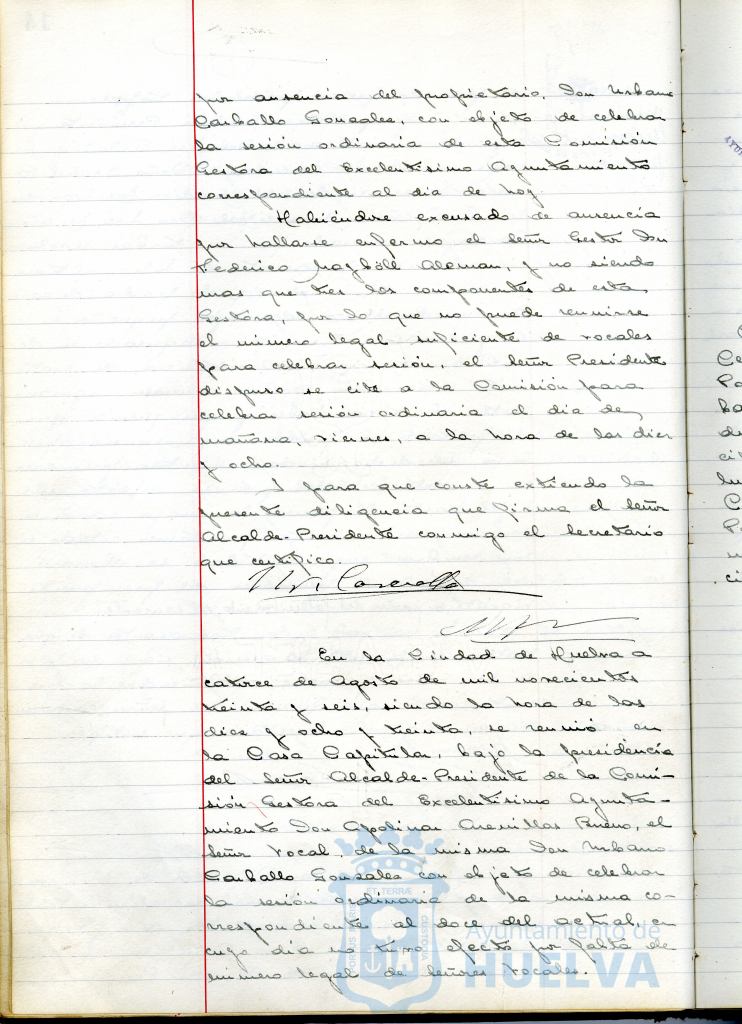 por ausencia del propietario, Don Urbano
Carballo Gonzalez, con objeto de celebrar
la sesión ordinaria de esta Comisión
Gestora del Excelentísimo Ayuntamiento
correspondiente al dia de hoy.
Habiéndose excusado de ausencia
por hallarse enfermo el Señor Gestor Don
Federico Aleman, y no siendo
mas que tres los componentes de esta
Gestora, por lo que no puede reunirse
el número legal suficiente de vocales
para celebrar sesión, el Señor Presidente
dispuso se cite a la Comisión para
celebrar sesión ordinaria el dia de
mañana, viernes, a la hora de las diez
y ocho.
Y para que conste extiendo la
presente diligencia que firma el Señor
Alcalde-Presidente conmigo el Secretario
que certifico.
En la Ciudad de Huelva a
catorce de Agosto de mil novecientos
treinta y seis, siendo la hora de las
diez y ocho y treinta, se reunió en
la Casa Capitular, bajo la presidencia
del Señor Alcalde-Presidente de la Comi-
sión Gestora del Excelentísimo Ayunta-
miento Don Apolinar Arenillas Bueno, el
Señor Vocal de la misma Don Urbano
Carballo Gonzalez con objeto de celebrar
la sesión ordinaria de la misma co-
rrespondiente al doce del actual, en
cuyo dia no tuvo efecto por falta de
número legal de Señores Vocales.
ET TERRÆ
PORTUS MARIS
CUSTODIA
Ayuntamiento de
HUELVA